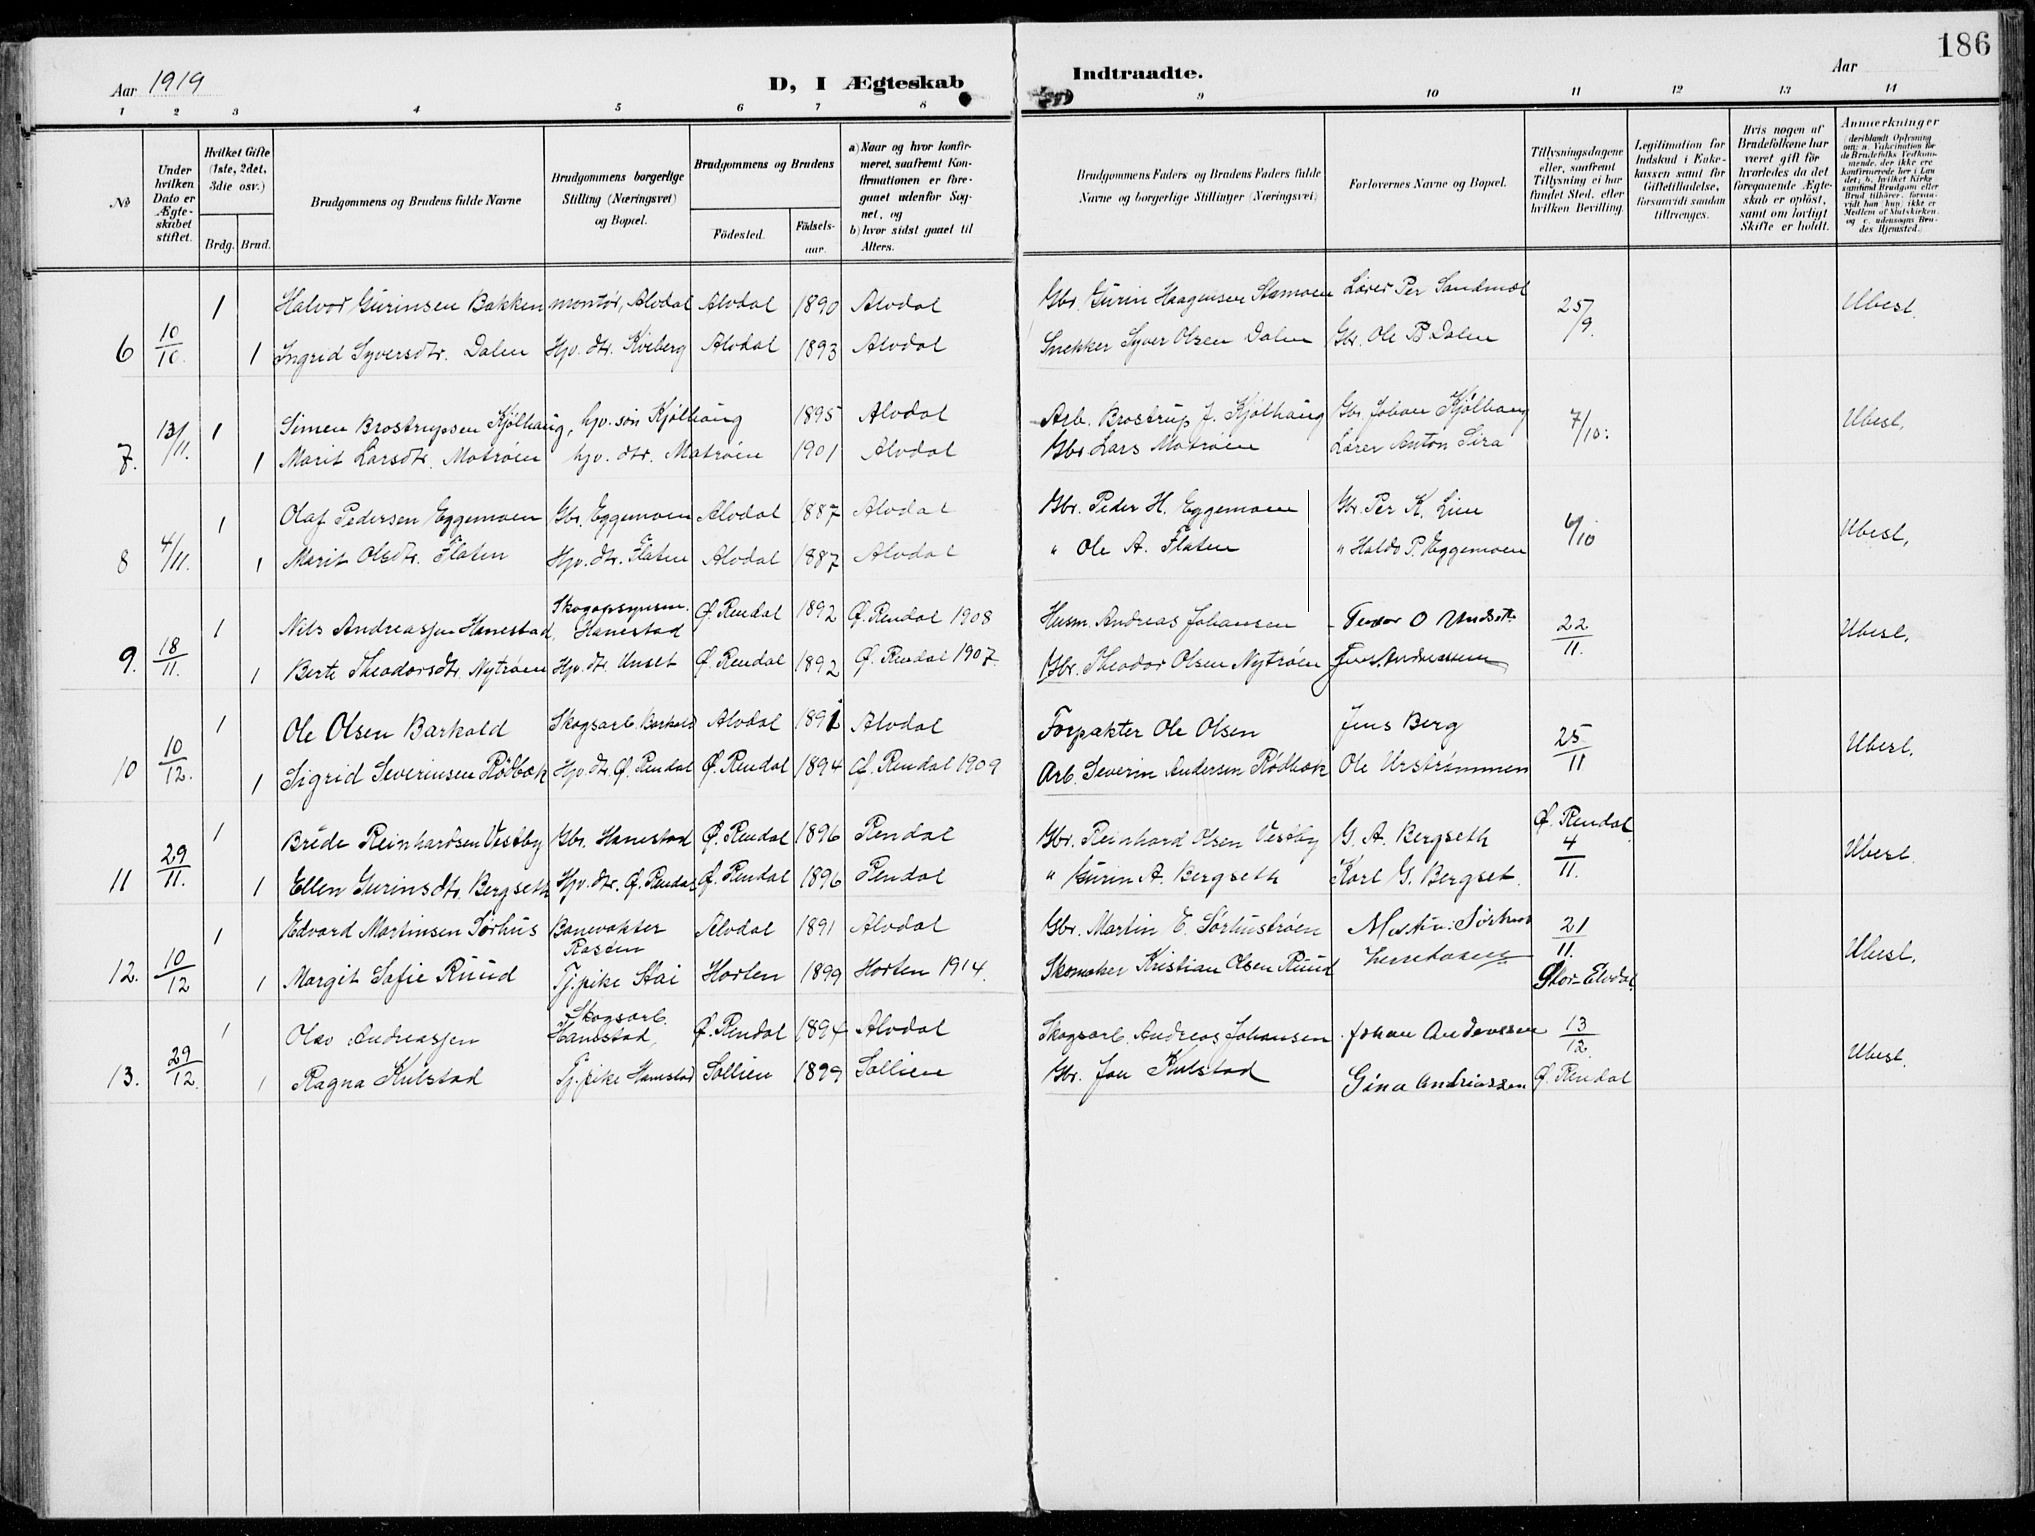 186
Aar 1919
D, I Ægteskab Indtraadte.
Aar
1 2 3 4 5 6 7 8 9 10 11 12 13 14
№
Under hvilken Dato er Ægteskabet stiftet.
Hvilket Gifte (1ste, 2det, 3die osv.)
Brdg. Brud.
Brudgommens og Brudens fulde Navne
Brudgommens borgerlige Stilling (Næringsvei) og Bopæl.
Brudgommens og Brudens
Födested. Födsels-aar.
a) Naar og hvor konfirmeret, saafremt Konfirmationen er foregaaet udenfor Sognet, og
b) hvor sidst gaaet til Alters.
Brudgommens Faders og Brudens Faders fulde Navne og borgerlige Stillinger (Næringsvei)
Forlovernes Navne og Bopæl.
Tillysningsdagene eller, saafremt Tillysning ei har fundet Sted, efter hvilken Bevilling.
Legitimation for Indskud i Enkekassen samt for Giftetilladelse, forsaavidt saadan tiltrænges.
Hvis nogen af Brudefolkene har været gift för hvorledes da det foregaaende Ægteskab er oplöst, samt om lovligt Skifte er holdt.
Anmærkninger
deriblandt Oplysning om: a. Vakcination for de Brudefolks Vedkommende, der ikke ere konfirmerede her i Landet; b. hvilket Kirkesamfund Brudgom eller Brud tilhører, forsaavidt han (hun) ikke er Medlem af Statskirken, og c. udensogns Brudes Hjemsted.)
1 Halvor Gurinsen Bakken montør, Alvdal Alvdal 1890 Alvdal Gbr. Gurin Haagensen Stamoen Lærer Per Sandmæl 25/9. Ubesl.
6 10/10. 1 Ingrid Syversdtr. Dalen Hjv. dtr. Kviberg Alvdal 1893 Alvdal Snekker Syver Olsen Dalen Gbr. Ole P. Dalen
13/11. 1 Simen Brostrupsen Kjølhaug, hjv. søn Kjølhaug 1895 Alvdal Arb. Brostrup J. Kjølhaug Gbr Johan Kjølhaug 7/10. Ubesl.
7. 1 Marit Larsdtr. Motrøen hjv. dtr. Motrøen 1901 Alvdal Gbr Lars Motrøen Lærer Anton Lira
1 Olaf Pedersen Eggemoen Gbr. Eggemoen Alvdal 1887 Alvdal Gbr. Peder H. Eggemoen Gbr. Per K. Lien 6/10 Ubesl.
8 4/11. 1 Marit Olsdtr. Flaten Hjv. dtr. Flaten Alvdal 1887 Alvdal " Ole A. Flaten " Haldo P. Eggemoen
1 Nils Andreassen Hanestad, Skogopsynsm. Hanestad Ø. Rendal 1892 Ø. Rendal 1908 Husm. Andreas Johansen Teodor O Undset 22/11. Ubesl.
9. 18/11. 1 Berte Theodorsdtr. Nytrøen Hjv. dtr. Unset Ø. Rendal 1892 Ø. Rendal 1907. Gbr. Theodor Olsen Nytrøen Andreassen
1 Ole Olsen Barkald Skogsarb. Barkald Alvdal 1891 Alvdal Forpakter Ole Olsen Jens Berg 25/11 Ubesl.
10 10/12. 1 Sigrid Severinsen Rødbæk Hjv. dtr. Ø. Rendal Ø. Rendal 1894 Ø. Rendal 1909 Arb. Severin Andersen Rødbæk Ole Urstrømmen
1 Brede Reinhardsen Vestby Gbr. Hanestad Ø. Rendal 1896 Rendal Gbr. Reinhard Olsen Vestby G. A. Bergseth Ø. Rendal 4/11. Ubesl.
11 29/11. 1 Ellen Gurinsdtr. Bergseth Hjv. dtr. Ø. Rendal Ø. Rendal 1896 Rendal " Gurin A. Bergseth Karl G. Bergset.
1 Edvard Martinsen Sørhus Banevakter Rasten Alvdal 1891 Alvdal Gbr. Martin E. Sørhustrøen Martin Sørhus 21/11. Stor-Elvdal. Ubesl.
12. 10/12 1 Margit Sofie Ruud Tj.pike Stai Horten 1899 Horten 1914. Skomaker Kristian Olsen Ruud
1 Olav Andreassen Skogsarb. Hanestad, Ø. Rendal 1894 Alvdal Skogsarb. Andreas Johansen Johan Andersen 13/12. Ø. Rendal Ubesl.
13. 29/12. 1 Ragna Kulstad Tj.pike Hanestad Sollien 1899 Sollien Gbr. Jon Kulstad Gina Andreassen